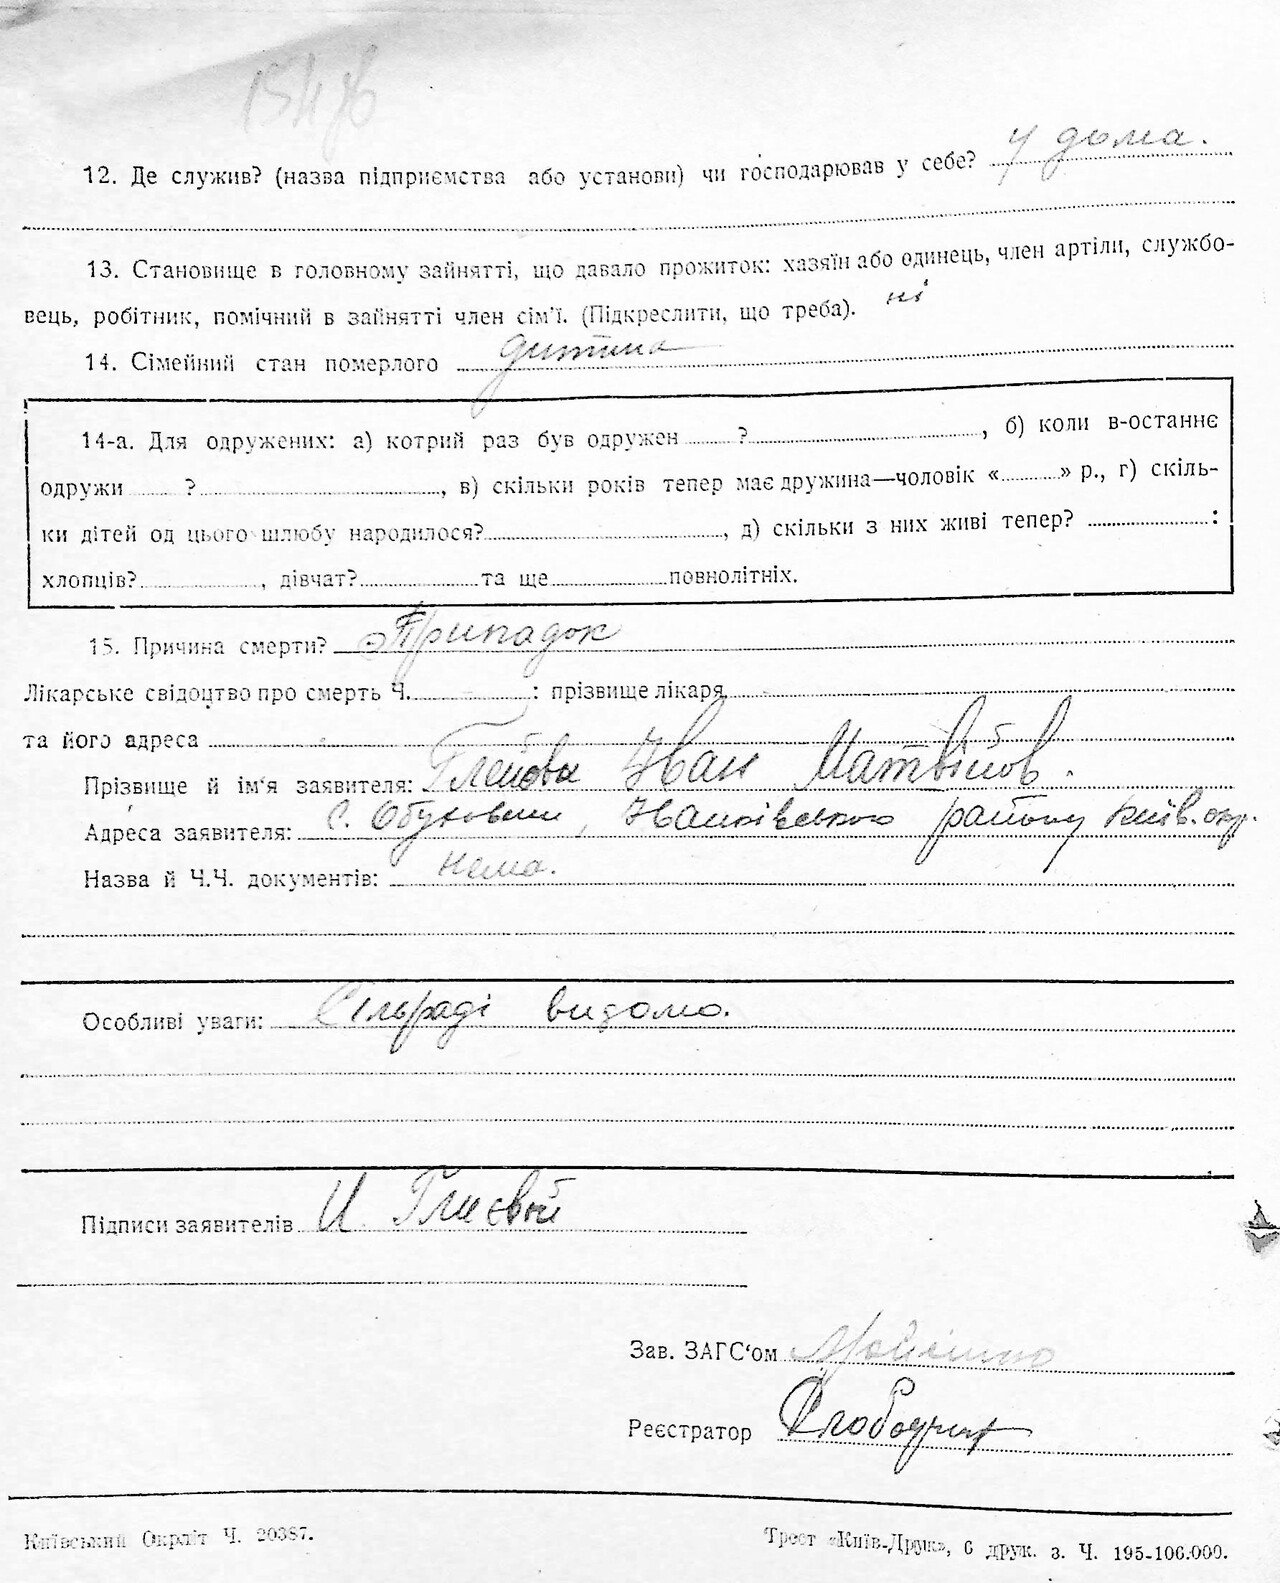 12. Де служив? (назва підприємства або установи) чи господарював у себе? у дома.
13. Становище в головному зайнятті, що давало прожиток: хазяїн або одинець, член артіли, службо-
вець, робітник, помічний в зайнятті член сім'ї. (Підкреслити, що треба). ні
14. Сімейний стан померлого дитина
14-а. Для одружених: а) котрий раз був одружен ?, б) коли в-останнє
одружи ?, в) скільки років тепер має дружина—чоловік « » р., г) скіль-
ки дітей од цього шлюбу народилося?, д) скільки з них живі тепер? :
хлопців?, дівчат? та ще повнолітніх.
15. Причина смерти? Припадок
Лікарське свідоцтво про смерть Ч. : прізвище лікаря
та його адреса
Прізвище й ім'я заявителя: Іван Матвійов.
Адреса заявителя: с. Обуховичи, Іванківського району Київ. окр.
Назва й Ч.Ч. документів: нема.
Особливі уваги: Сільраді видомо.
Підписи заявителів И. Глиєвой
Зав. ЗАГС'ом
Реєстратор
Київський Окрліт Ч. 20387.
Трест «Київ-Друк», 6 друк. з. Ч. 195-100.000.